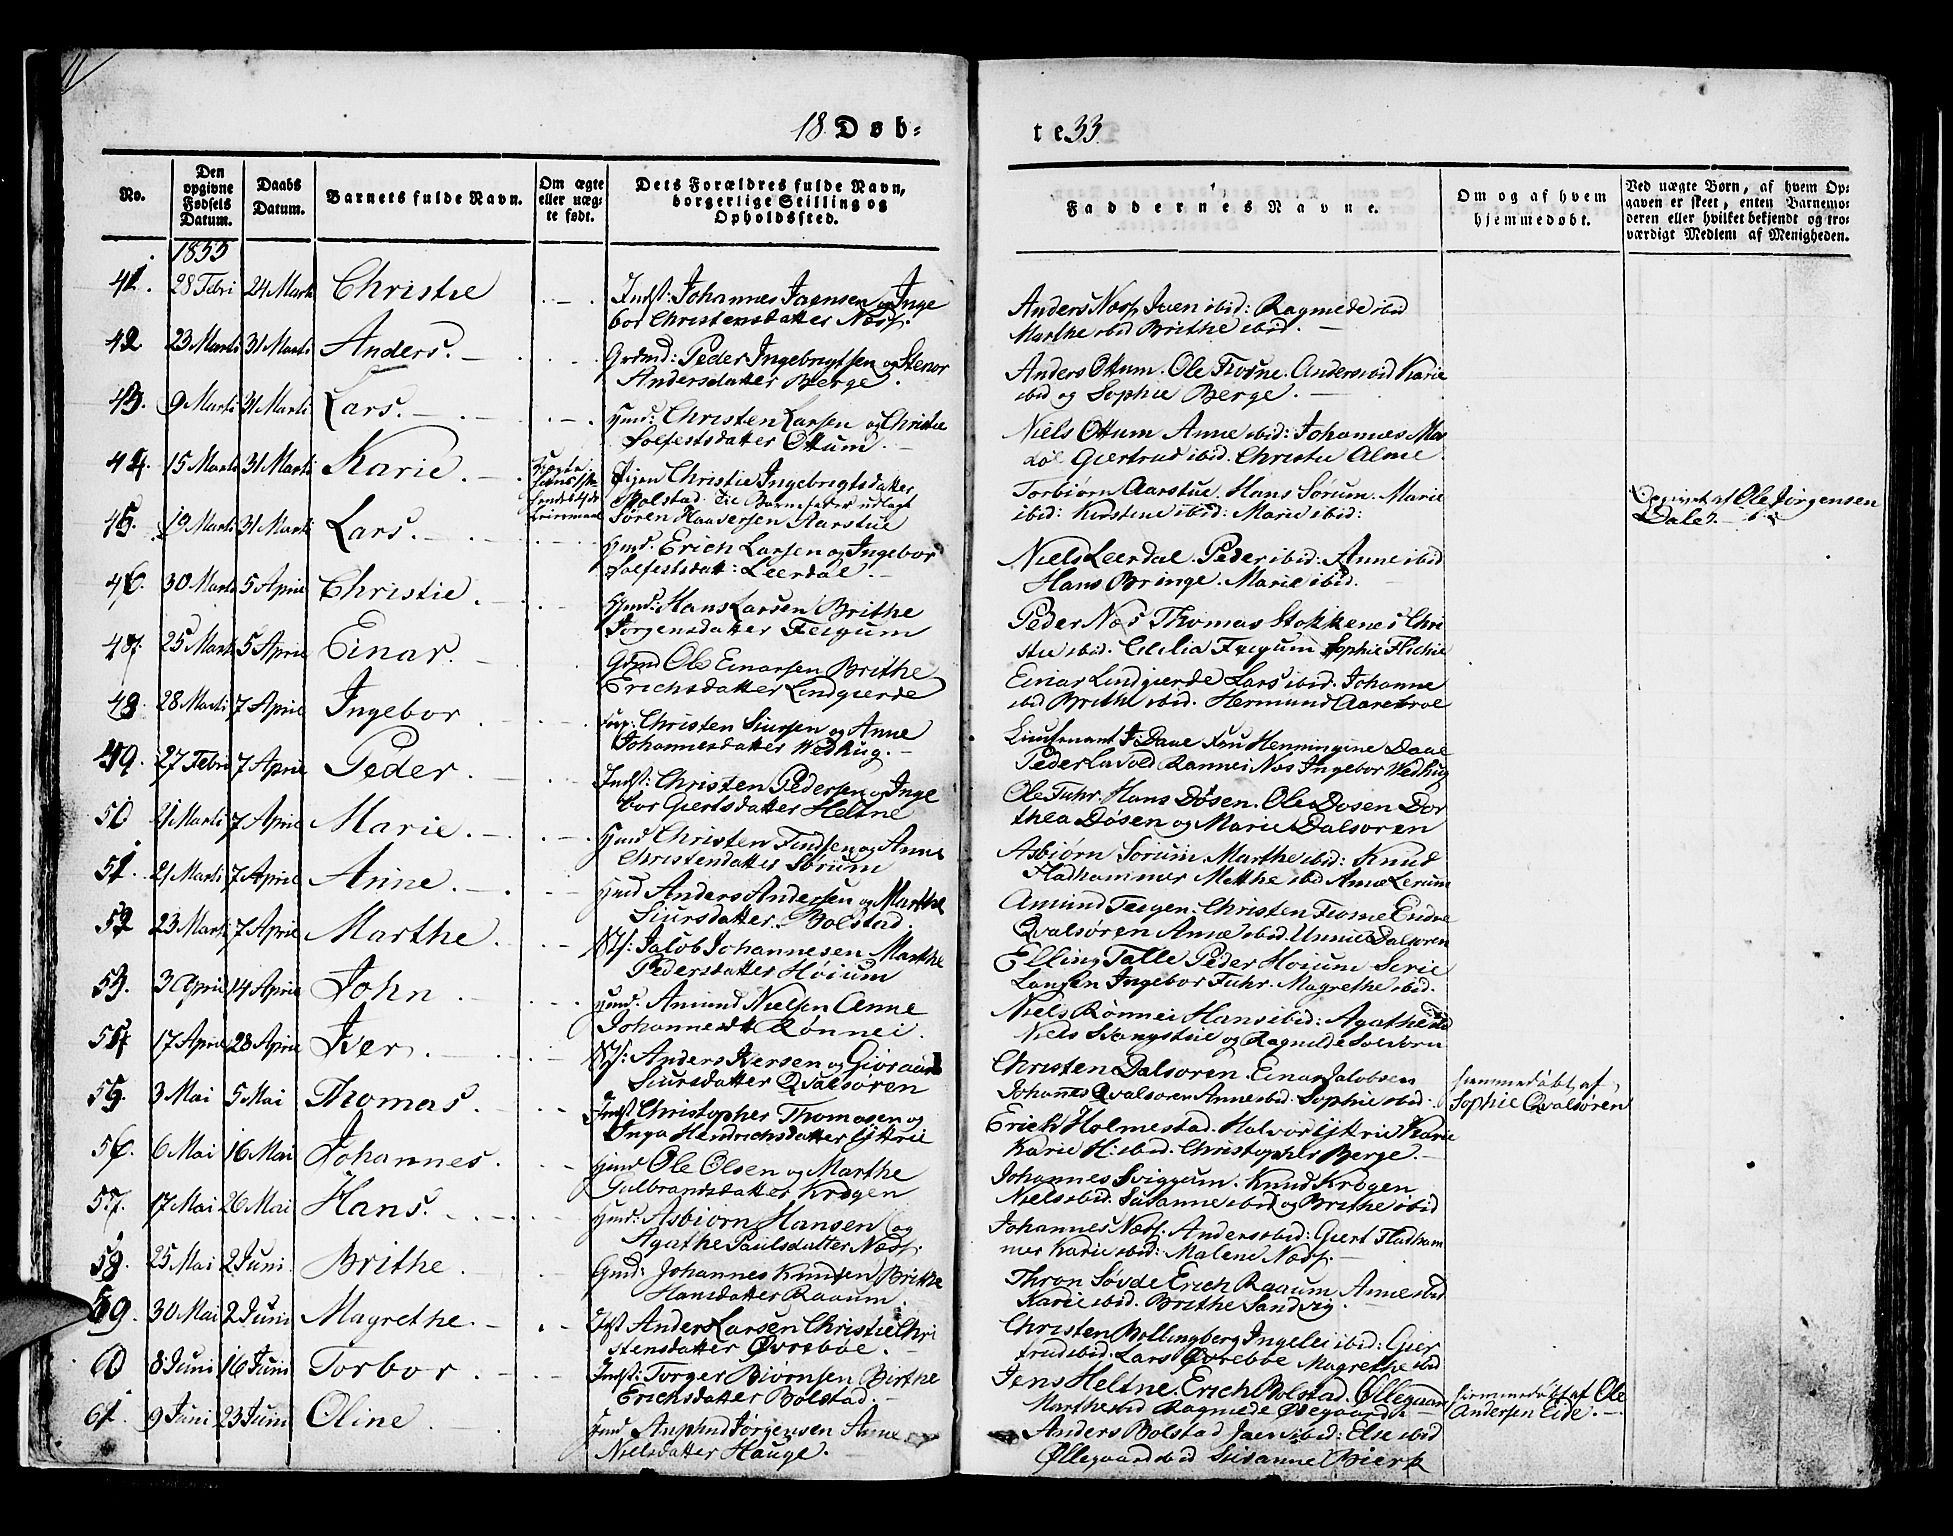 11
18 Døb-
te 33.
No.
Den opgivne Fødsels Datum.
Daabs Datum.
Barnets fulde Navn.
Om ægte eller uægte født.
Dets Forældres fulde Navn, borgerlige Stilling og Opholdssted.
Faddernes Navne.
Om og af hvem hjemmedøbt.
Ved uægte Børn, af hvem Opgaven er skeet, enten Barnemoderen eller hvilket bekjendt og troværdigt Medlem af Menigheden.
1833
41. 28 Febri 24 Marti Christie Indst: Johannes Joensen og Inge
bor Christensdatter Næss.
Anders Næss Iven ibid: Ragnilde ibid
Marthe ibid Brithe ibid.
42 23 Marti 31 Marti Anders. Grdmd: Peder Ingebrigtsen og Stenor
Andersdatter Berge.
Anders Ottum. Ole Thorne. Anders ibid Karie
ibid og Sophie Berge.
43. 9 Marti 31 Marti Lars. Hmd: Christen Larsen og Christie
Solfestsdatter Ottum
Niels Ottum Anne ibid: Johannes Mo
Giertrud ibid. Christie Alme
44. 15 Marti 31 Marti Karie. Uægte
Pigen Christie Ingebrigtsdatter
Bolstad. Til Barnefader udlagt
Søren Haaversen Aarstue
Torbiørn Aarstue. Hans Sørum. Marie
ibid: Kirstine ibid: Marie ibid:
Opgivet af Ole Jørgensen
Dale
45. 19 Marti 31 Marti Lars. Hmd. Erich Larsen og Ingebor
Solfestsdatt: Leerdal.
Niels Leerdal. Peder ibid: Anne ibid
Hans Bringe. Marie ibid.
46. 30 Marti 5 April Christie. Hmd: Hans Larsen Brithe
Jørgensdatter Feigum
Peder Næs Thomas Stokkenes Chri
stie ibid. Cicilia Feigum Sophie
47. 25 Marti 5 April Einar. Grmd Ole Einarsen Brithe
Erichsdatter Lindgierde
Einar Lindgierde Lars ibid. Johanne
ibid Brithe ibid. Hermund
48. 28 Marti 7 April Ingebor Christen Siursen og Anne
Johannesdatter Wedhug.
Lieutenant J. Daae Fru Henningine Daae
Peder Rannei Næs Ingebor Wedhug
49. 27 Febri 7 April Peder. Indst: Christen Pedersen og Inge
bor Giertsdatter Heltne
Ole Fuhr. Hans Døsen. Ole Døsen Dor
thea Døsen og Marie Dalsøren
50 21 Marti 7 April Marie. Hmd Christen Findsen og Anne
Christensdatter Sørum
Asbiørn Sørum. Marthe ibid: Knud
Fladhammer Mette ibid Anne Lerum
51. 21 Marti 7 April Anne. Hmd Anders Andersen og Marthe
Siursdatter Bolstad.
Amund Teigen. Christen Endre
Qvalsøren Anne ibid. Unnie Dalsøren
52 23 Marti 7 April Marthe. Jacob Johannesen Marthe
Pedersdatter Høium
Elling Talle Peder Høium Serie
Ingebor Fuhr. Magrethe ibid.
53. 3 April 14 April John. Hmd. Amund Nielsen Anne
Johannesdt Rønnei.
Niels Rønnei Hans ibid: Agathe ibid
Niels og Ragnilde
54 17 April 28 April Iver. Anders Iversen og
Siursdatter Qvalsøren
Christen Dalsøren. Einar Jacobsen
Johannes Qvalsøren Anne ibid. Sophie ibid.
hiemmedøbt af
Sophie Qvalsøren
55. 3 Mai 5 Mai Thomas. Indst. Christopher Thomasen og
Inga Hendrichsdatter Yttrie
Erich Holmestad. Halvor Yttrie Karie
Karie H: ibid. Christopher Berge.
56. 6 Mai 16 Mai Johannes. Hmd Ole Olsen og Marthe
Gulbrandsdatter Krogen
Johannes Sviggum. Knud Krogen
Niels ibid. Susanne ibid og Brithe ibid
57. 17 Mai 26 Mai Hans. Hmd: Asbiørn Hansen og
Agathe Paulsdatter Næss.
Johannes Næss. Anders ibid: Giert Fladham
mer Karie ibid: Malene Næss.
58. 25 Mai 2 Juni Brithe. Gmd: Johannes Knudsen Brithe
Hansdatter Raaum
Thron Søvde Erich Raaum Anne ibid
Karie ibid. Brithe Sandvig.
59. 30 Mai 2 Juni Magrethe. Inst Anders Larsen Christie Chri
stensdatter Øvreboe.
Christen Bollingberg Ingelei ibid: Gier
trud ibid. Lars Øvreboe Magrethe ibid
60 8 Juni 16 Juni Torbor. Indst: Torger Biørnsen Birthe
Erichsdatter Bolstad
Jens Heltne. Erich Bolstad. Øllegaar
Marthe ibid Ragnilde
hiemmedøbt af Ole
Andersen Eide.
61. 9 Juni 23 Juni Oline. Hmd Amund Jørgensen Anne
Nielsdatter Hauge.
Anders Bolstad Joen ibid: Else ibid
Øllegaard ibid Susanne Bierk